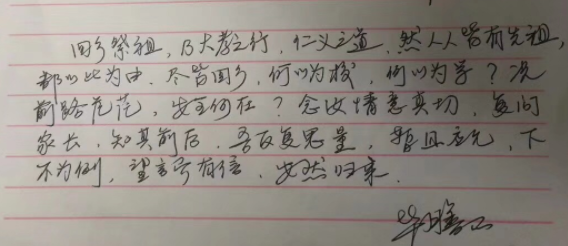 回乡祭祖，乃大孝之行，仁义之道，然人人皆有先祖，
都以此为由，尽皆回乡，何以为校，何以为学？况
前路茫茫，安全何在？念汝情意真切，复问
家长，知其前后，吾反复思量，暂且应允，下
不为例，望言而有信，安然归来。